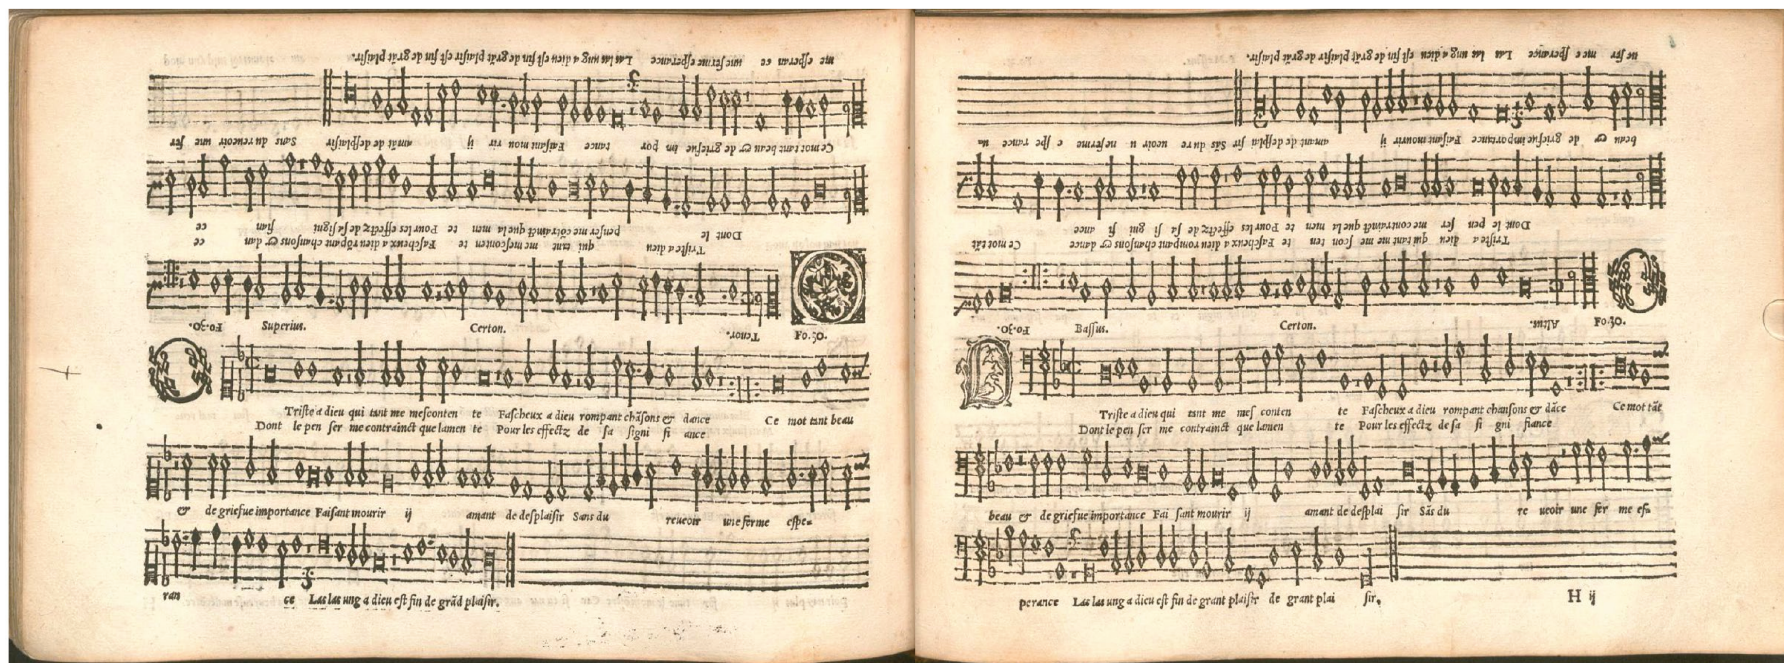 Superius. Certon. Fo.30.
Triste a dieu qui tant me mesconten te Fascheux a dieu rompant chãsons & dance Ce mot tant beau
Dont le pen ser me contrainct que lamen te Pour les effectz de sa signi fi ance
& de griefue importance Faisant mourir ij amant de desplaisir Sans du reuoir une ferme espe-
ran ce Las las ung a dieu est fin de grãd plaisir.
Tenor. Fo.30.
Triste a dieu qui tant me mesconten te Fascheux a dieu rõpant chansons & dan ce
Dont le penser me cõtrainct que la men te Pour les effectz de sa signi fian ce
Ce mot tant beau & de griefue im por tance Faisant mou rir ij amãt de desplaisir Sans du reuoir une fer
me esperan ce une ferme esperance Las las ung a dieu est fin de grãt plaisir est fin de grãt plaisir.
Bassus. Certon. Fo.30.
Triste a dieu qui tant me mes conten te Fascheux a dieu rompant chansons & dãce Ce mot tãt
Dont le pen ser me contrainct que lamen te Pour les effectz de sa si gni fiance
beau & de griefue importance Fai sant mourir ij amant de desplai sir Sãs du re ueoir une fer me es-
perance Las las ung a dieu est fin de grant plaisir de grant plai sir.
H ij
Altus. Fo.30.
Triste a dieu qui tant me me scon ten te Fascheux a dieu rompant chansons & dance Ce mot tãt
Dont le pen ser me contrainct que la men te Pour les effectz de sa si gni fi ance
beau & de griefue importance Faisant mourir ij amant de desplai sir Sãs du re ueoir u ne ferme e spe rance u
ne fer me e sperance Las las ung a dieu est fin de grãt plaisir grãt plaisir.